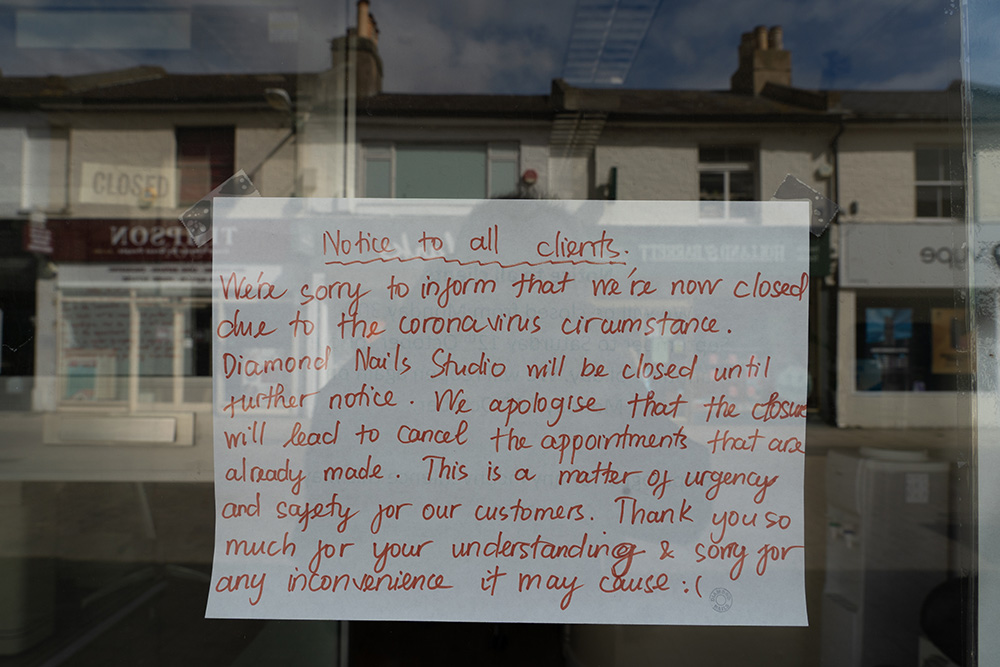 CLOSED
TIMPSON
HOLLAND & BARRETT
Notice to all clients.
We're sorry to inform that we're now closed
due to the coronavirus circumstance.
Diamond Nails Studio will be closed until
further notice. We apologise that the closure
will lead to cancel the appointments that are
already made. This is a matter of urgency
and safety for our customers. Thank you so
much for your understanding & sorry for
any inconvenience it may cause :(